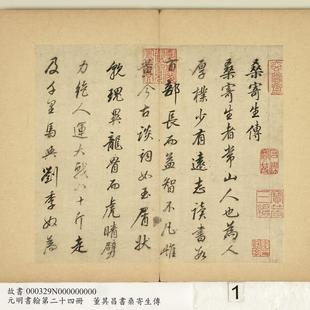 桑寄生傳
桑寄生者常山人也為人
厚樸少有遠志讀書數
百部長而益智不凡雌
黃今古談詞如玉屑狀
貌瑰異龍骨而虎睛膂
力絕人運大戟八十斤走
及千里馬與劉季奴為
故書 000329N000000000
元明書翰第二十四冊 董其昌書桑寄生傳
1